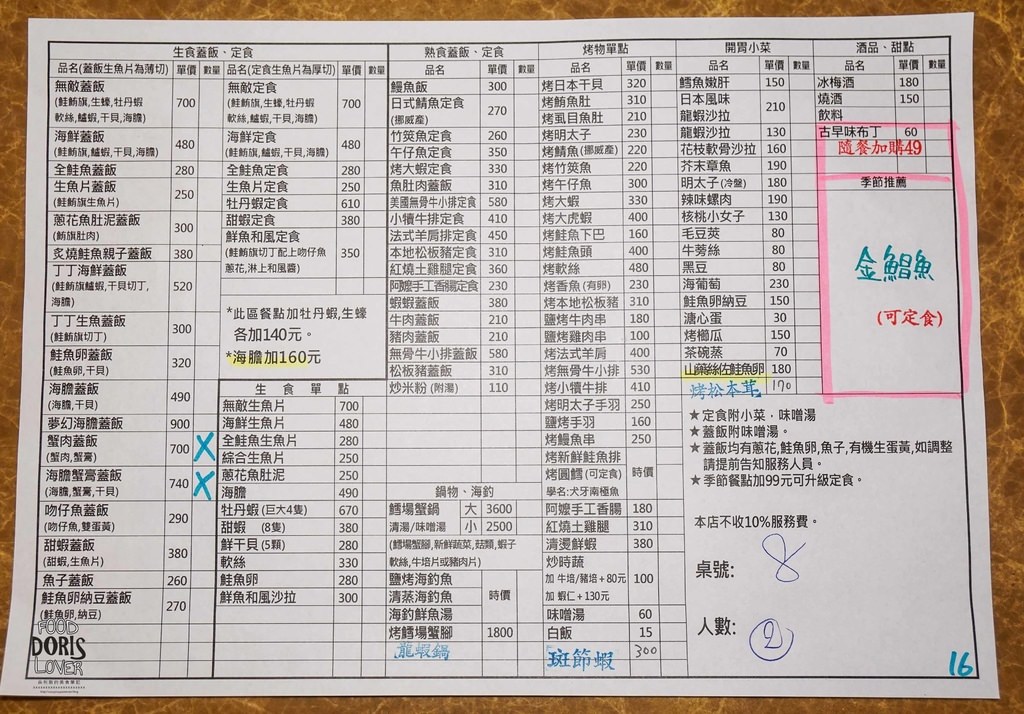 生食蓋飯、定食
品名(蓋飯生魚片為薄切) 單價 數量
無敵蓋飯 700
(鮭鮪旗,生蠔,牡丹蝦
軟絲,鱸蝦,干貝,海膽)
海鮮蓋飯 480
(鮭鮪旗,鱸蝦,干貝,海膽)
全鮭魚蓋飯 280
生魚片蓋飯 250
(鮭鮪旗生魚片)
蔥花魚肚泥蓋飯 300
(鮪旗肚肉)
炙燒鮭魚親子蓋飯 380
丁丁海鮮蓋飯 520
(鮭鮪旗鱸蝦,干貝切丁,
海膽)
丁丁生魚蓋飯 300
(鮭鮪旗切丁)
鮭魚卵蓋飯 320
(鮭魚卵,干貝)
海膽蓋飯 490
(海膽,干貝)
夢幻海膽蓋飯 900
蟹肉蓋飯 700 X
(蟹肉,蟹膏)
海膽蟹膏蓋飯 740 X
(海膽,蟹膏,干貝)
吻仔魚蓋飯 290
(吻仔魚,雙蛋黃)
甜蝦蓋飯 380
(甜蝦,生魚片)
魚子蓋飯 260
鮭魚卵納豆蓋飯 270
(鮭魚卵,納豆)
品名(定食生魚片為厚切) 單價 數量
無敵定食 700
(鮭鮪旗,生蠔,牡丹蝦
軟絲,鱸蝦,干貝,海膽)
海鮮定食 480
(鮭鮪旗,鱸蝦,干貝,海膽)
全鮭魚定食 280
生魚片定食 250
牡丹蝦定食 610
甜蝦定食 380
鮮魚和風定食 350
(鮭鮪旗切丁配上吻仔魚
蔥花,淋上和風醬)
*此區餐點加牡丹蝦,生蠔
各加140元。
*海膽加160元
生食單點
無敵生魚片 700
海鮮生魚片 480
全鮭魚生魚片 280
綜合生魚片 250
蔥花魚肚泥 250
海膽 490
牡丹蝦(巨大4隻) 670
甜蝦 (8隻) 380
鮮干貝(5顆) 280
軟絲 330
鮭魚卵 280
鮮魚和風沙拉 300
熟食蓋飯、定食
品名 單價 數量
鰻魚飯 300
日式鯖魚定食 270
(挪威產)
竹筴魚定食 260
午仔魚定食 350
烤大蝦定食 330
魚肚肉蓋飯 310
美國無骨牛小排定食 580
小犢牛排定食 410
法式羊肩排定食 450
本地松板豬定食 310
紅燒土雞腿定食 360
阿嬤手工香腸定食 230
蝦蝦蓋飯 380
牛肉蓋飯 210
豬肉蓋飯 210
無骨牛小排蓋飯 580
松板豬蓋飯 310
炒米粉(附湯) 110
鍋物、海釣
鱈場蟹鍋 大 3600
清湯/味噌湯 小 2500
(鱈場蟹腳,新鮮蔬菜,菇類,蝦子
軟絲,牛培片或豬肉片)
鹽烤海釣魚
清蒸海釣魚 時價
海釣鮮魚湯
烤鱈場蟹腳 1800
龍蝦鍋
烤物單點
品名 單價 數量
烤日本干貝 320
烤鮪魚肚 310
烤虱目魚肚 210
烤明太子 230
烤鯖魚(挪威產) 220
烤竹筴魚 220
烤午仔魚 300
烤大蝦 330
烤大虎蝦 400
烤鮭魚下巴 160
烤鮭魚頭 400
烤軟絲 480
烤香魚(有卵) 230
烤本地松板豬 310
鹽烤牛肉串 180
鹽烤雞肉串 100
烤法式羊肩 400
烤無骨牛小排 530
烤小犢牛排 410
烤明太子手羽 250
鹽烤手羽 160
烤鰻魚串 250
烤新鮮鮭魚排
烤圓鱈(可定食) 時價
學名:犬牙南極魚
阿嬤手工香腸 180
紅燒土雞腿 310
清燙鮮蝦 380
炒時蔬 100
加 牛培/豬培+80元
加 蝦仁+130元
味噌湯 60
白飯 15
斑節蝦 300
開胃小菜
品名 單價 數量
鱈魚嫩肝 150
日本風味 210
龍蝦沙拉
龍蝦沙拉 130
花枝軟骨沙拉 160
芥末章魚 190
明太子(冷盤) 180
辣味螺肉 190
核桃小女子 130
毛豆莢 80
牛蒡絲 80
黑豆 80
海葡萄 230
鮭魚卵納豆 150
溏心蛋 30
烤櫛瓜 150
茶碗蒸 70
山藥絲佐鮭魚卵 180
烤松本茸 170
酒品、甜點
品名 單價 數量
冰梅酒 180
燒酒 150
飲料
古早味布丁 60
隨餐加購49
季節推薦
金鯧魚
(可定食)
★定食附小菜,味噌湯
★蓋飯附味噌湯。
★蓋飯均有蔥花,鮭魚卵,魚子,有機生蛋黃,如調整
請提前告知服務人員。
★季節餐點加99元可升級定食。
本店不收10%服務費。
桌號: 8
人數: 2
16
FOOD
DORIS
LOVER